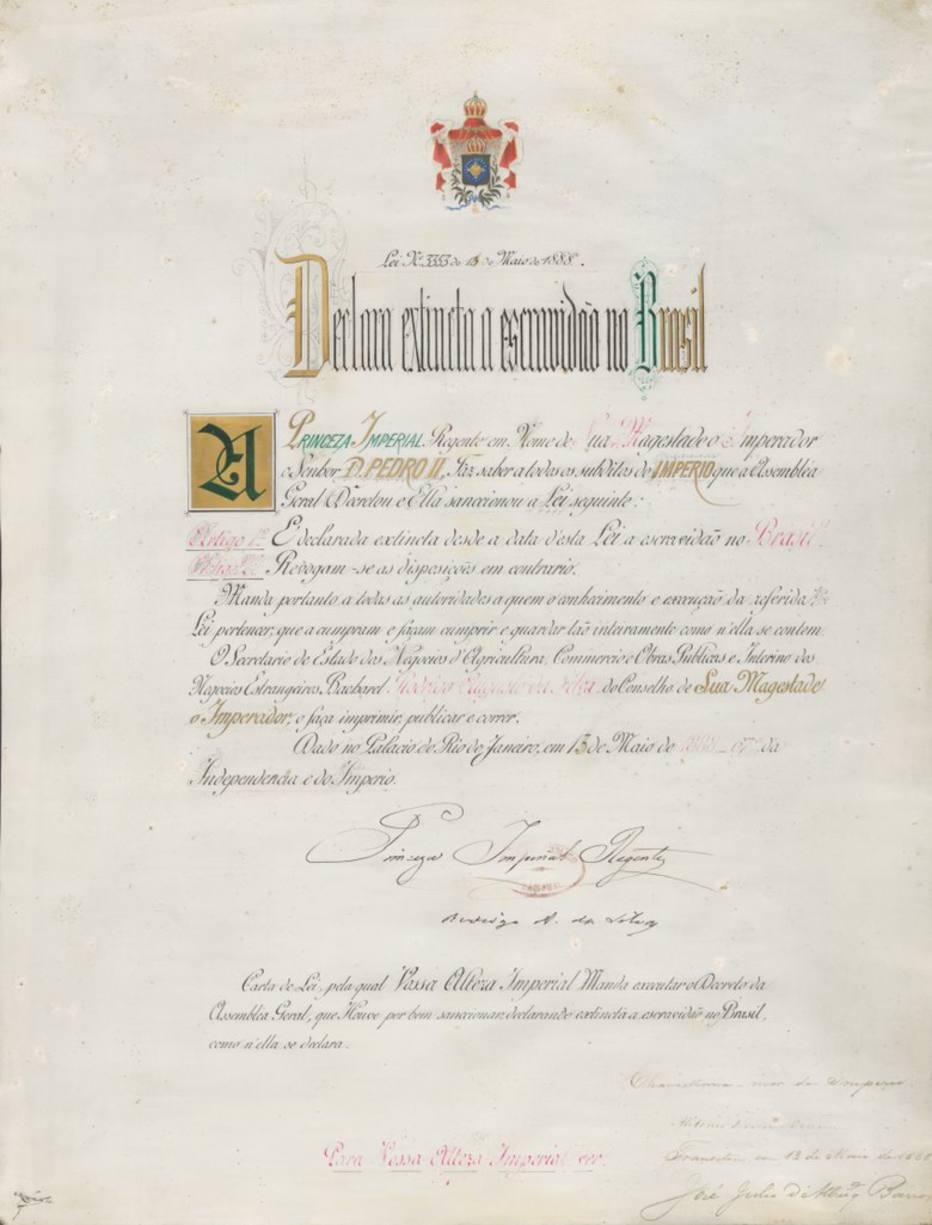 Lei Nº 3353 de 13 de Maio de 1888.
Declara extincta a escravidão no Brasil
A PRINCEZA IMPERIAL Regente em Nome de Sua Magestade o Imperador
o Senhor D. PEDRO II, Faz saber a todos os subditos do IMPERIO que a Assembléa
Geral Decretou e Ella sanccionou a Lei seguinte:
Artigo 1º É declarada extincta desde a data d'esta Lei a escravidão no Brasil.
Artigo 2º Revogam-se as disposições em contrario.
Manda portanto a todas as autoridades a quem o conhecimento e execução da referida
Lei pertencer, que a cumpram e façam cumprir e guardar tão inteiramente como n'ella se contem
O Secretario de Estado dos Negocios d'Agricultura, Commercio e Obras Publicas e Interino dos
Negocios Estrangeiros, Bacharel Rodrigo Augusto da Silva do Conselho de Sua Magestade
o Imperador, o faça imprimir, publicar e correr.
Dado no Palacio do Rio de Janeiro, em 13 de Maio de 1888 - 67º da
Independencia e do Imperio.
Princeza Imperial Regente
Rodrigo A. da Silva
Carta de Lei, pela qual Vossa Alteza Imperial Manda executar o Decreto da
Assembléa Geral, que Houve por bem sanccionar, declarando extincta a escravidão no Brasil,
como n'ella se declara.
Chancellaria-mor do Imperio
Para Vossa Alteza Imperial ver.
em 13 de Maio de 1888
José Julio d'Albuqᵉ Barros